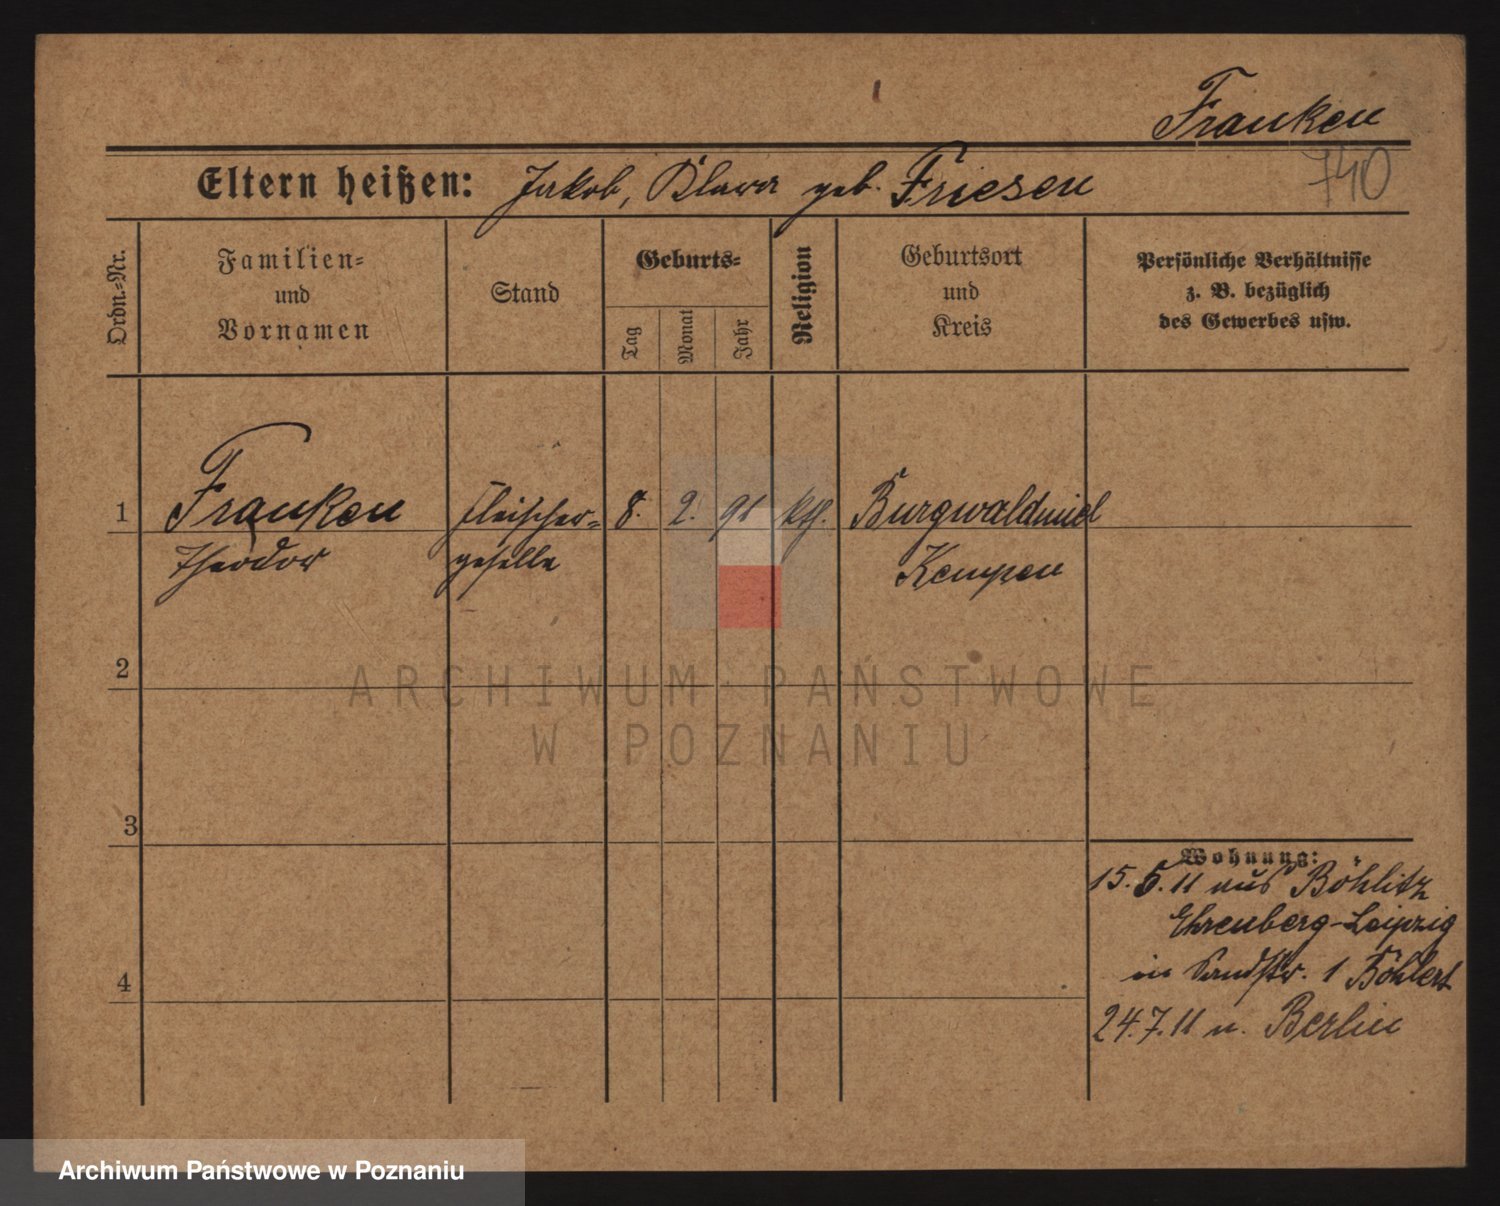 Franken
740
Eltern heißen: Jakob, Klara geb. Friesen
Ordn.-Nr.
Familien-
und
Vornamen
Stand
Geburts-
Tag
Monat
Jahr
Religion
Geburtsort
und
Kreis
Persönliche Verhältnisse
z. B. bezüglich
des Gewerbes usw.
1 Franken Fleischer- 8. 2. 91 kth. Burgwaldniel
Theodor geselle Kempen
2
ARCHIWUM PAŃSTWOWE
W POZNANIU
3
Wohnung:
15.5.11 aus Böhlitz
Ehrenberg-Leipzig
in Sandstr. 1 Böhlert
4
24.7.11 n. Berlin
Archiwum Państwowe w Poznaniu